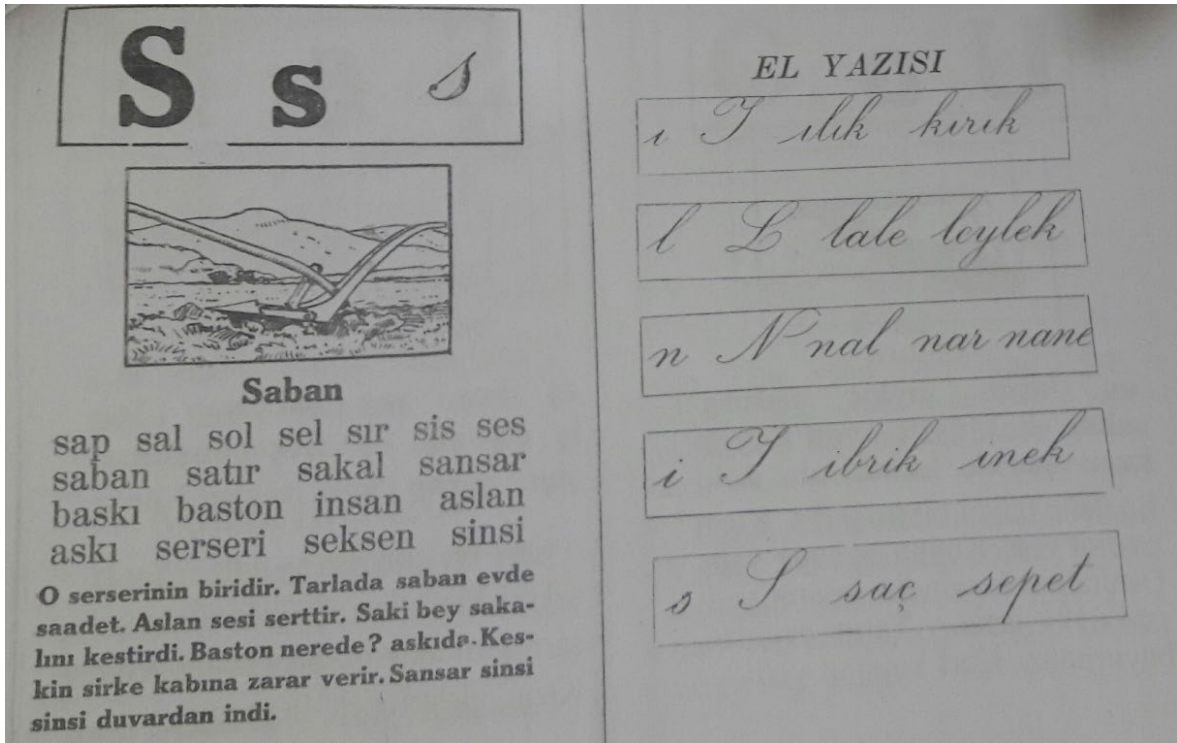 S s s
Saban
sap sal sol sel sır sis ses
saban satır sakal sansar
baskı baston insan aslan
askı serseri seksen sinsi
O serserinin biridir. Tarlada saban evde
saadet. Aslan sesi serttir. Saki bey saka-
lını kestirdi. Baston nerede? askıda. Kes-
kin sirke kabına zarar verir. Sansar sinsi
sinsi duvardan indi.
EL YAZISI
ı I ılık kırık
l L lale leylek
n N nal nar nane
i I ibrik inek
s S saç sepet